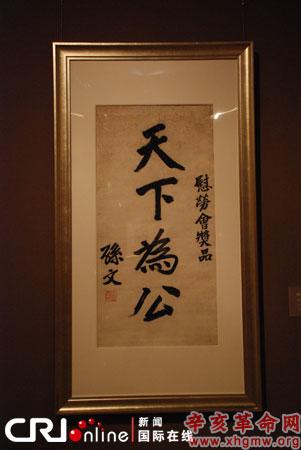 慰勞會獎品
天下為公
孫文
CRI online 新闻
国际在线
辛亥革命网
www.xhgmw.org